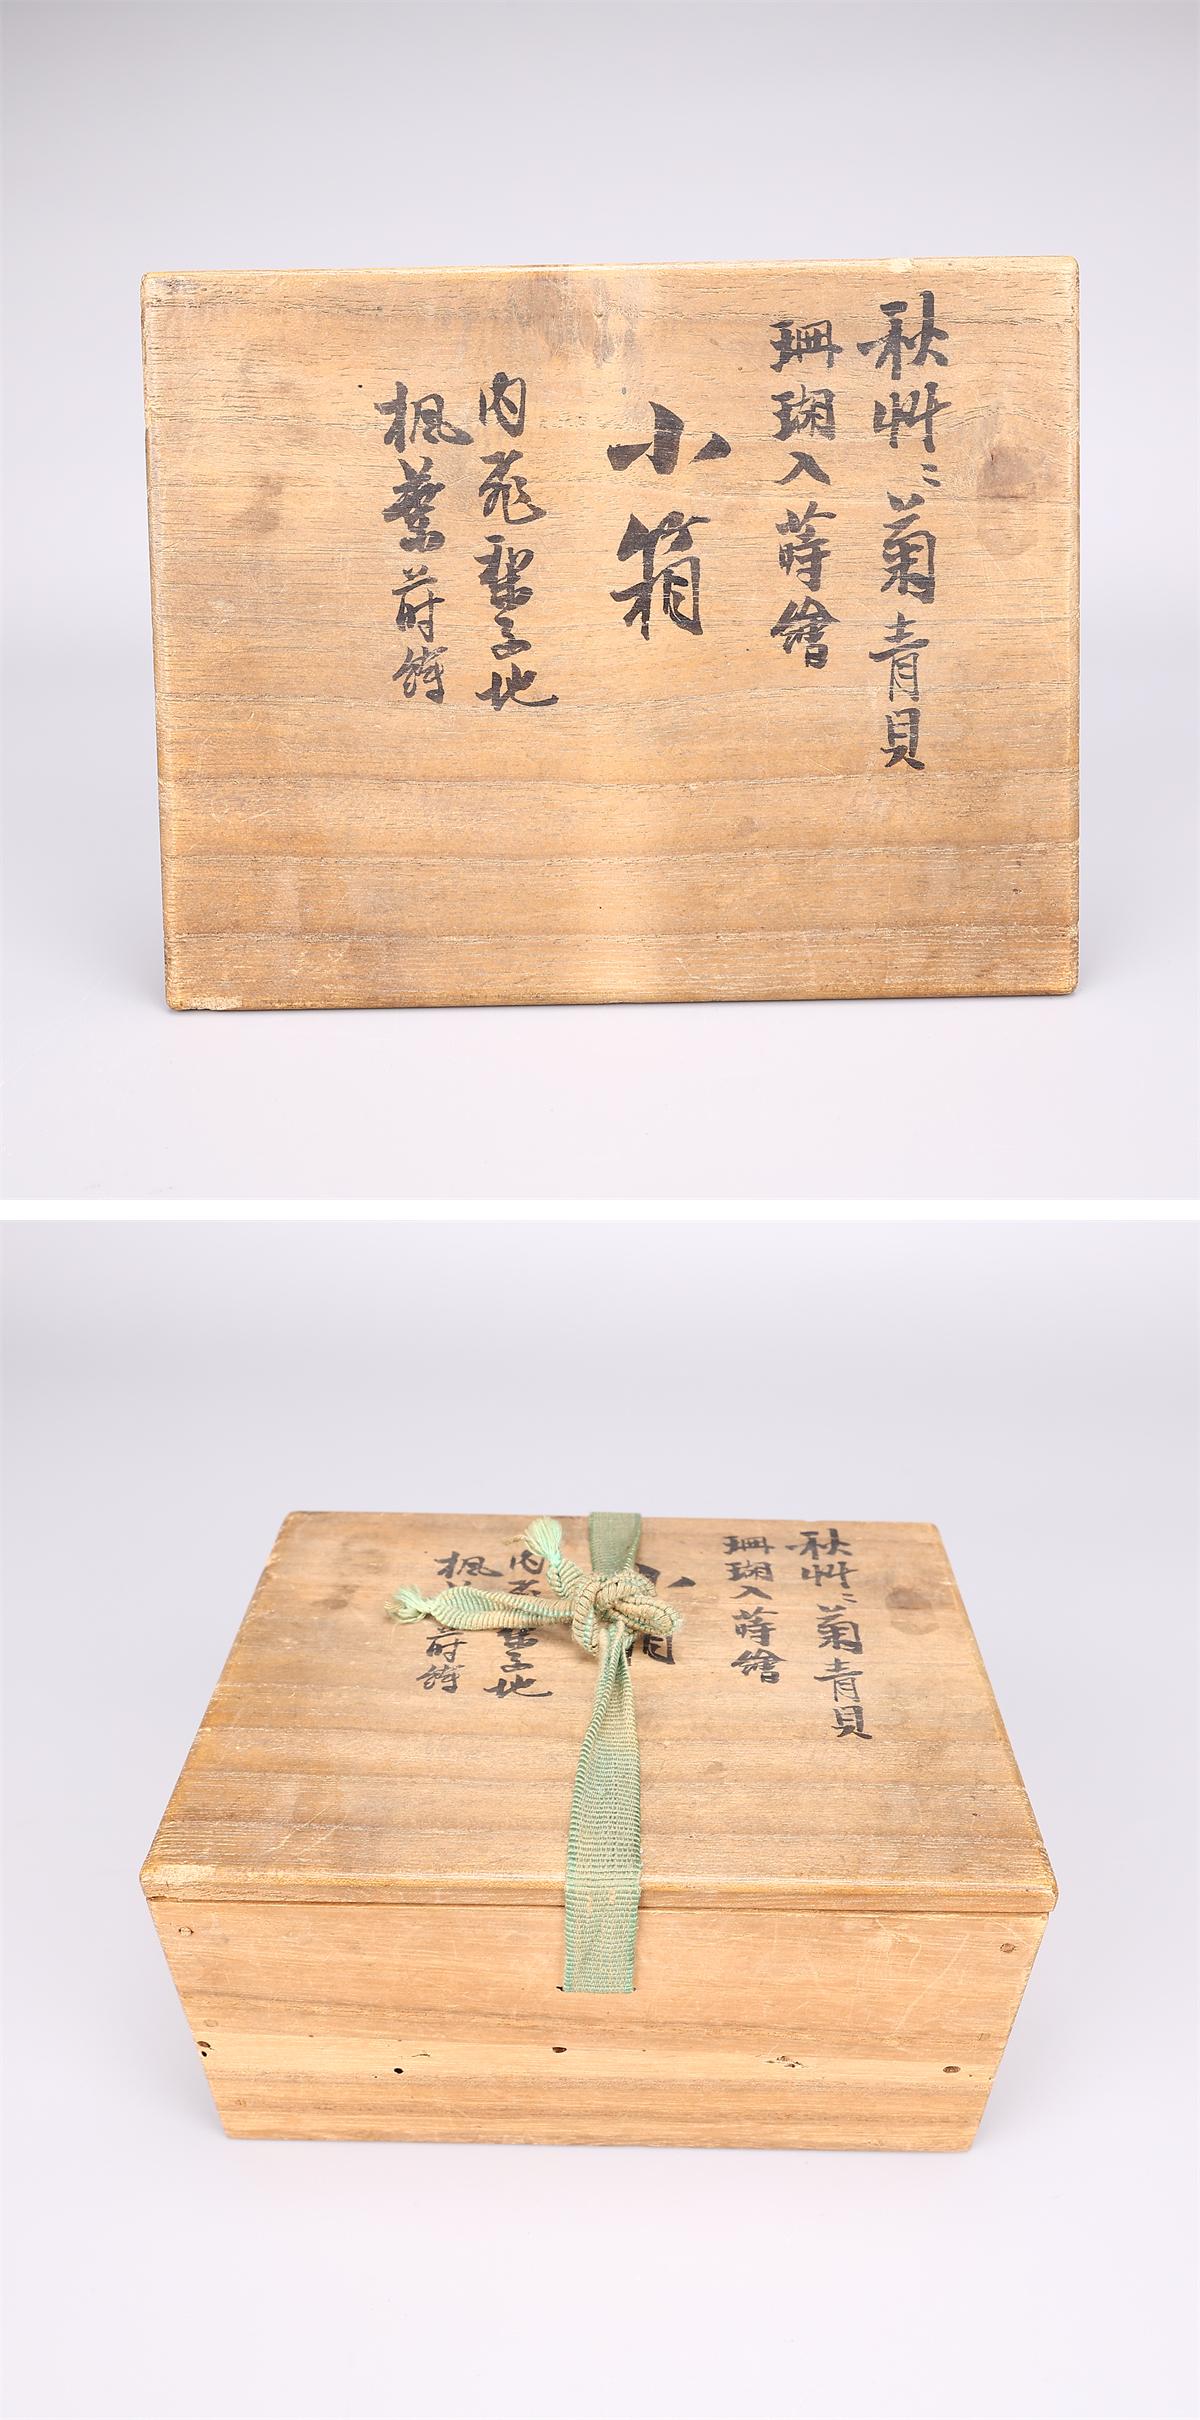 秋艸ニ菊青貝
珊瑚入蒔繪
小箱
内飛梨子地
楓葉蒔
秋艸ニ菊青貝
珊瑚入蒔繪
小
内 梨子地
楓 蒔